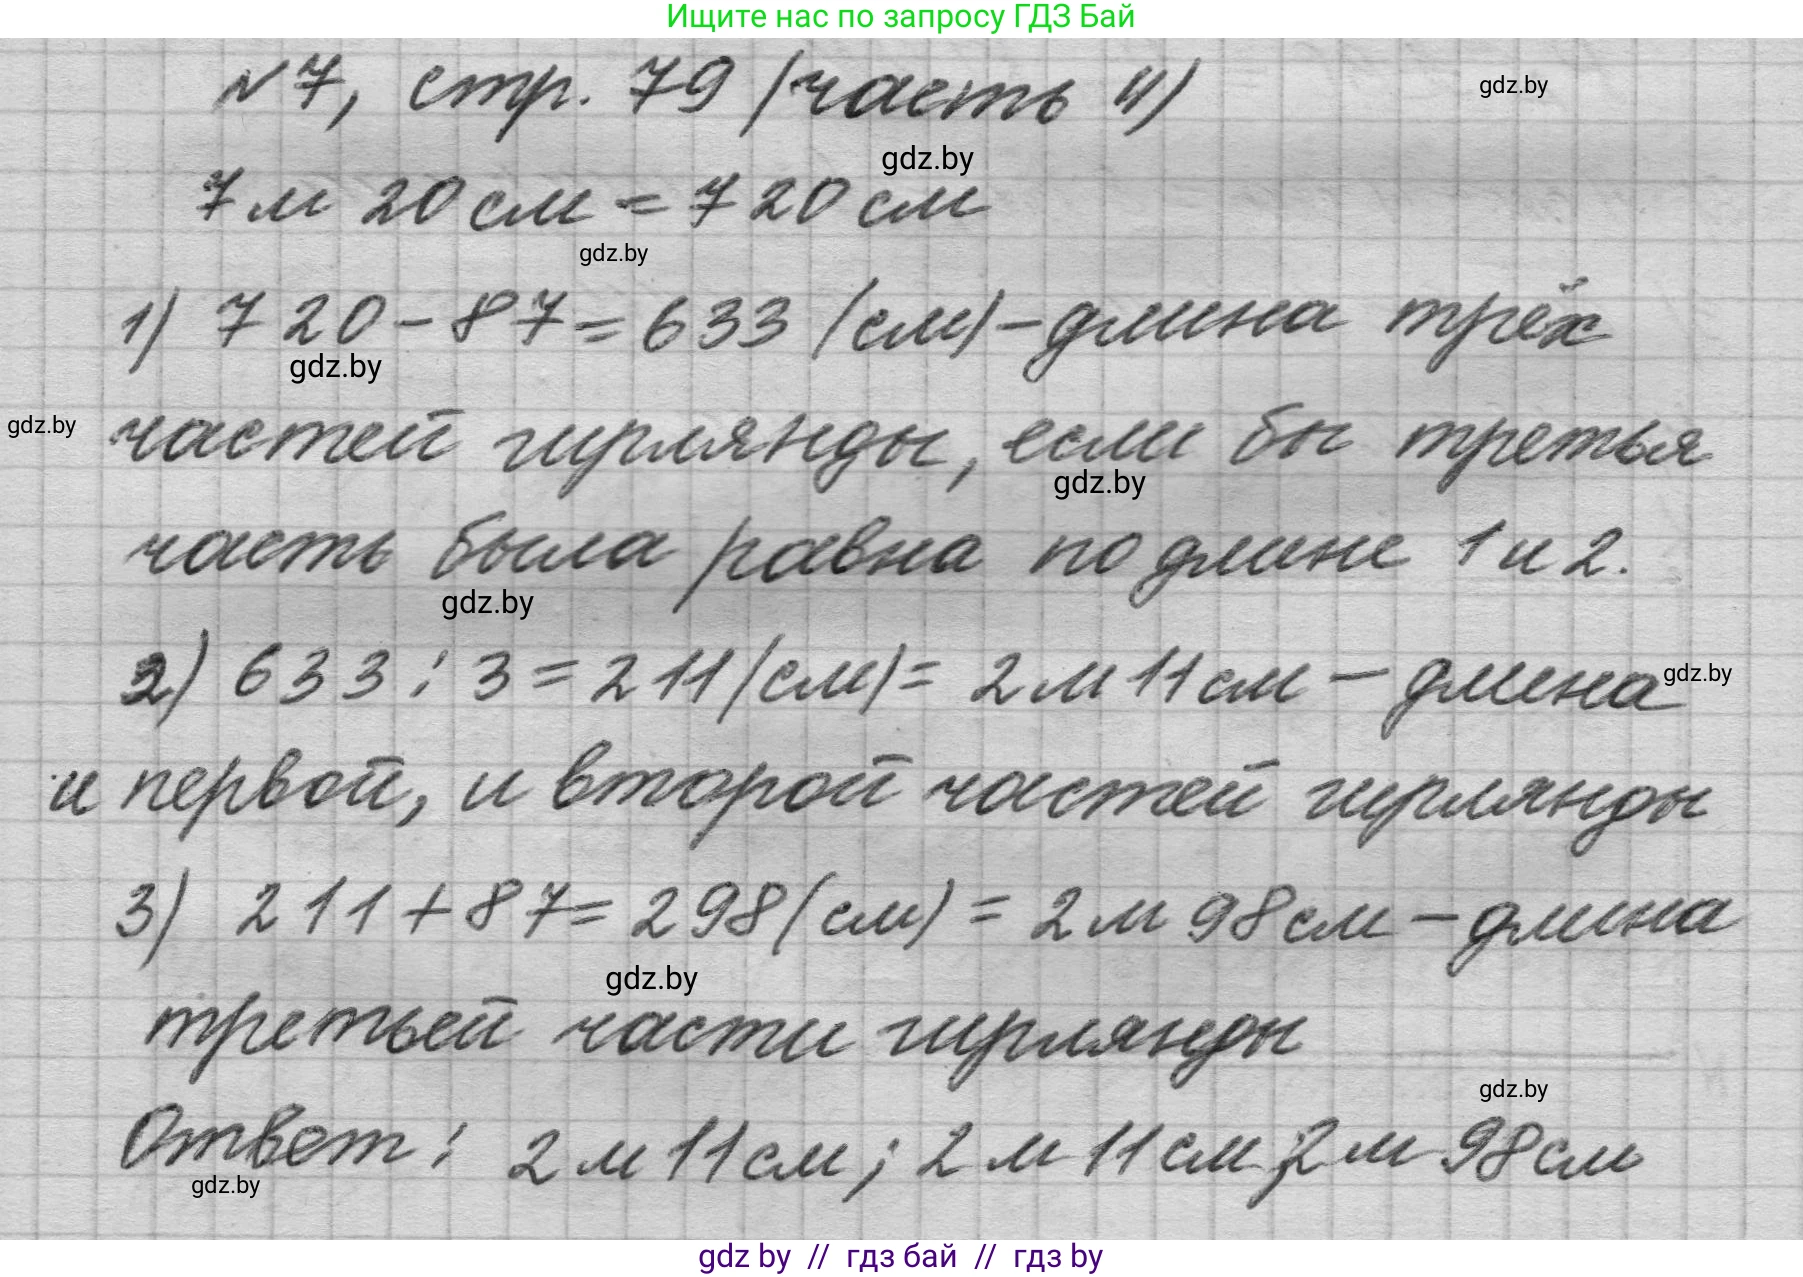 Ищите нас по запросу ГДЗ Бай
№7, стр. 79 (часть 4)
gdz.by
gdz.by
7м 20см = 720см
gdz.by
1) 720 - 87 = 633 (см) - длина трёх
gdz.by
gdz.by
частей гирлянды, если бы третья
gdz.by
часть была равна по длине 1 и 2.
gdz.by
2) 633 : 3 = 211 (см) = 2м 11см - длина
gdz.by
и первой, и второй частей гирлянды
3) 211 + 87 = 298 (см) = 2м 98см - длина
gdz.by
третьей части гирлянды
gdz.by
Ответ: 2м 11см; 2м 11см; 2м 98см
gdz.by
gdz by // гдз бай // гдз by